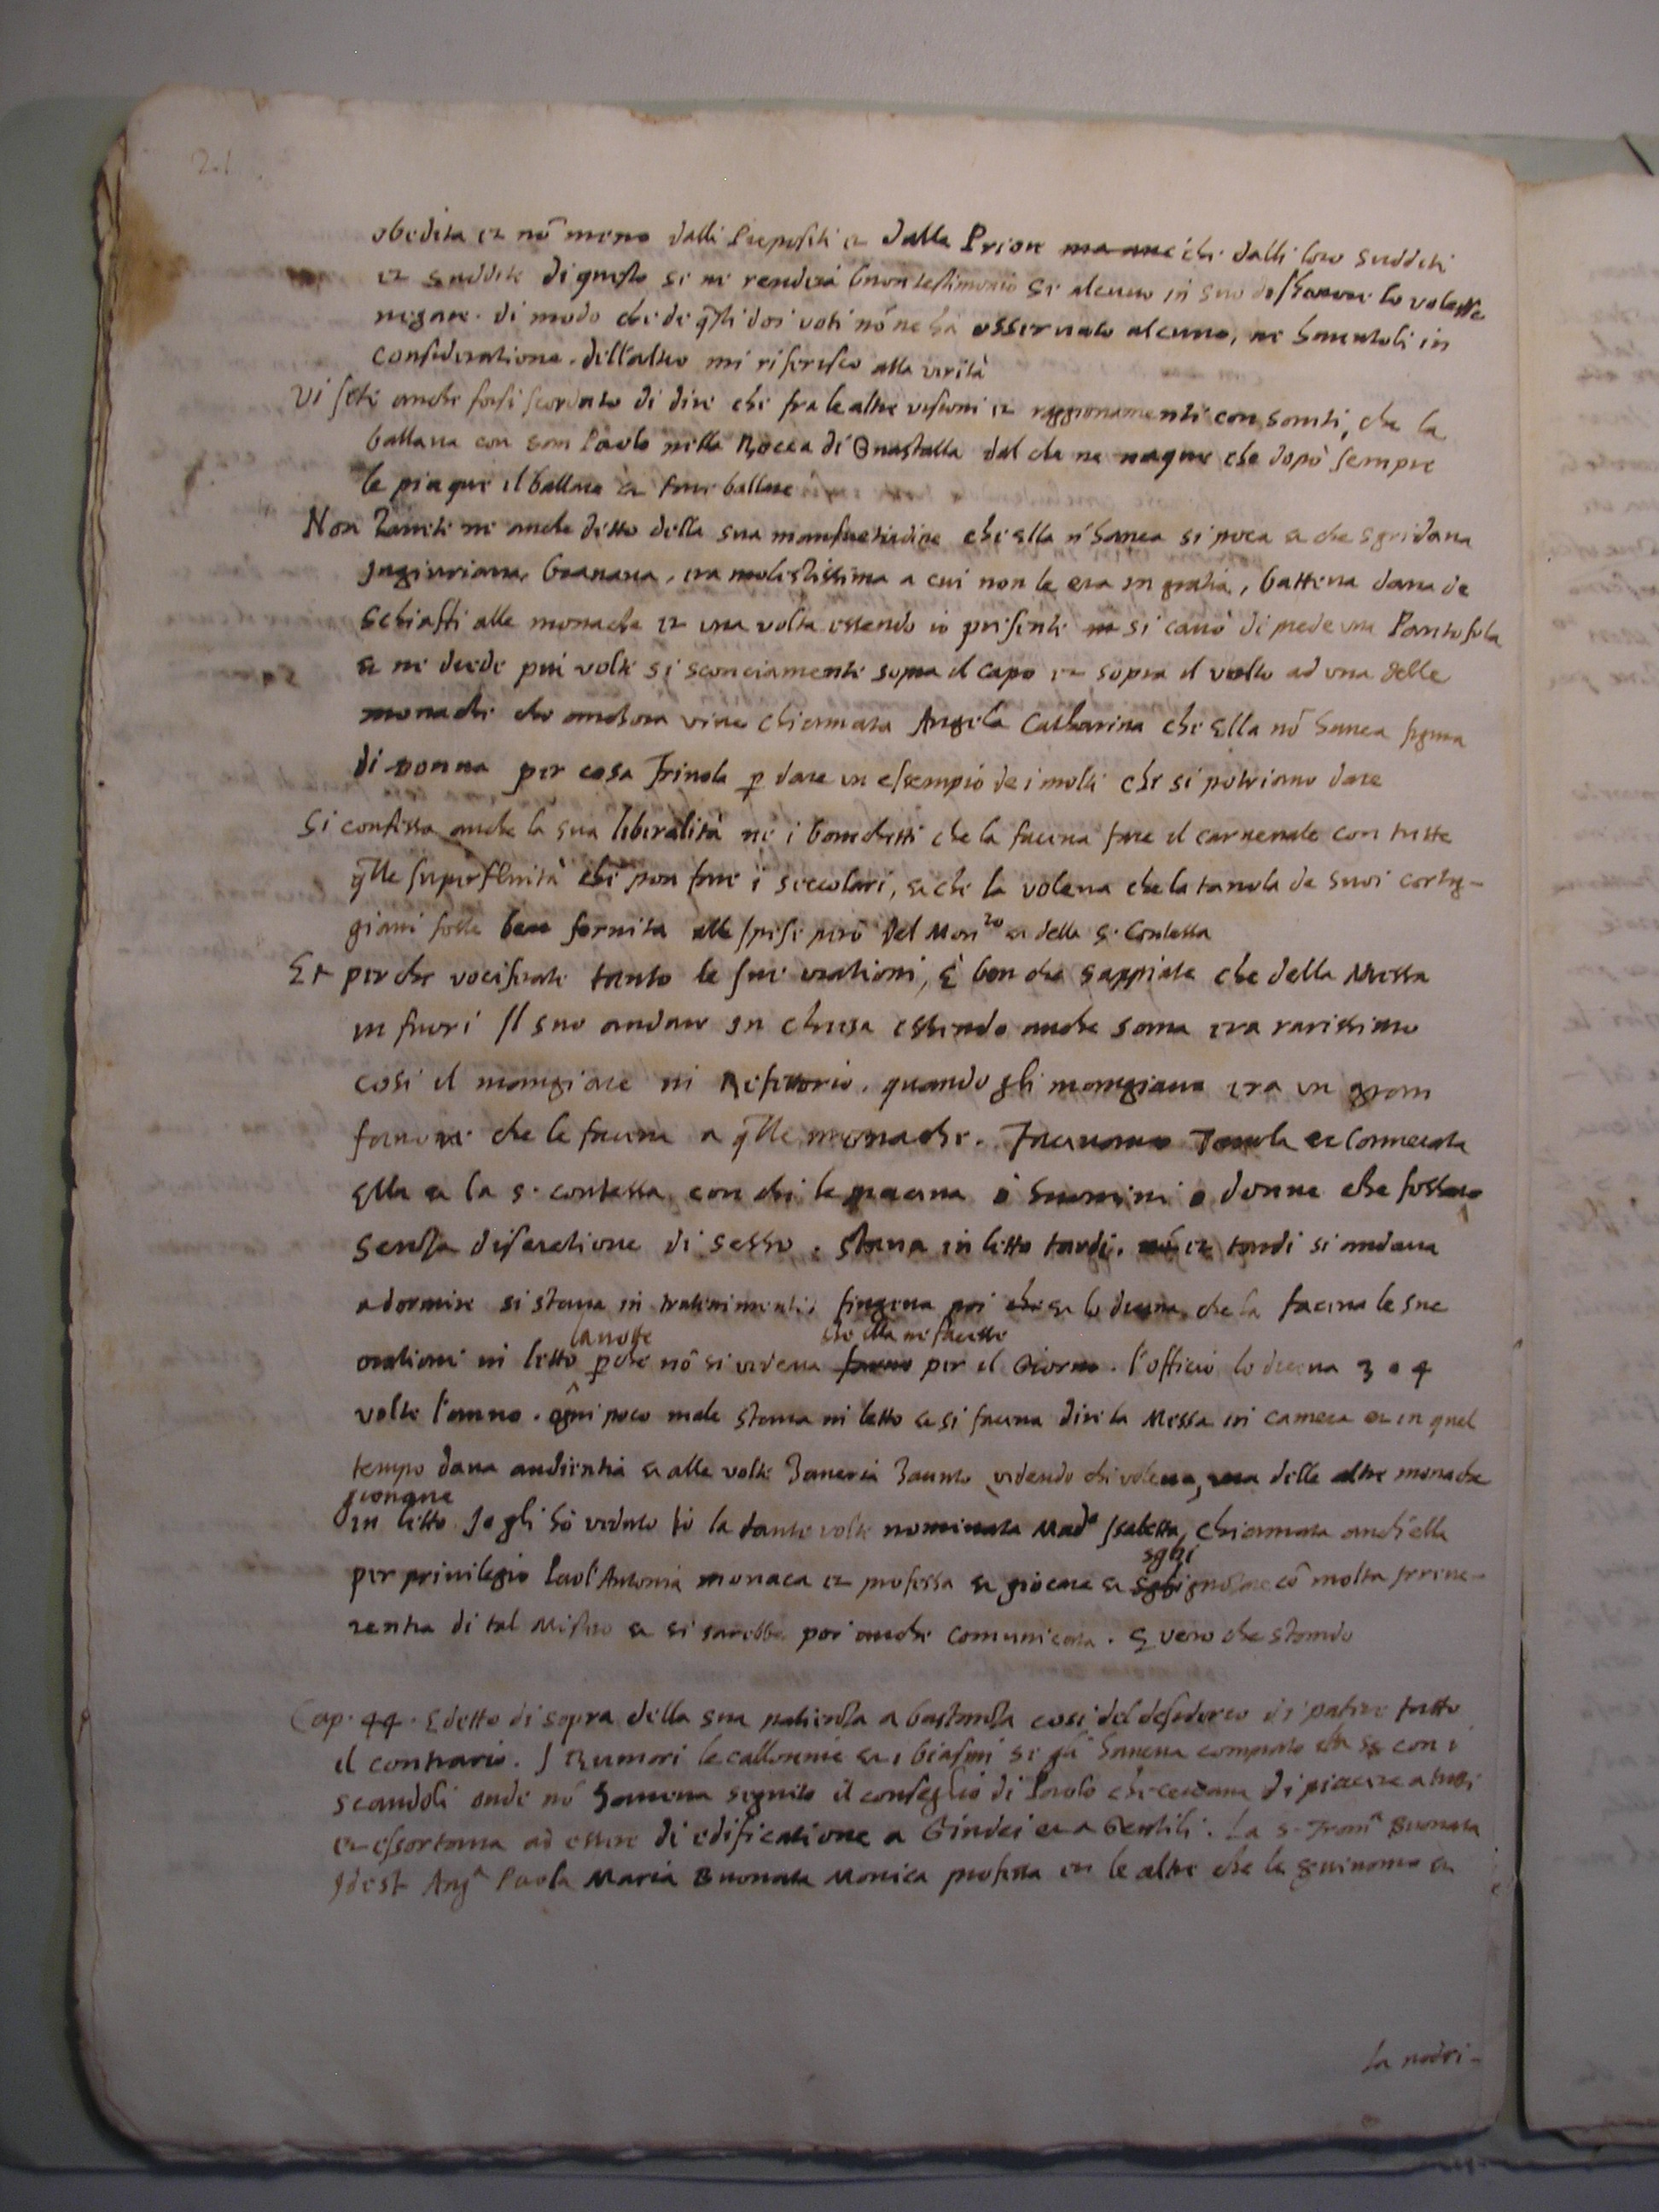 obedita et nõ meno dalli Prepositi et dalla Priore ma anc che dalli loro sudditi
et suddite di questo si ne renderà buon testimonio se alcuno in suo dishonore lo volesse
negare. di modo che de q̃sti doi voti nõ ne hà osservato alcuno, ne havutoli in
consideratione. dell'altro mi riferisco alla verità
Vi sete anche forsi scordato di dire che fra le altre visioni et raggionamenti con santi, che la
ballava con san Paolo nella Rocca di Guastalla dal che ne naque che dopò sempre
le piaque il ballare et fare ballare
Non havete ne anche ditto della sua mansuetudine che ella n'havea si poca et che sgridava
Ingiuriava, bravava, era molestissima a cui non le era in gratia, batteva dava de
schiaffi alle monache et una volta essendo io presente si cavò di piede una Pantofola
et ne diede più volte si sconciamente sopra il capo et sopra il volto ad una delle
monache che anchora vive chiamata Angela Catharina che ella nõ havea figura
di donna per cosa frivola p dare un essempio de i molti che si potriano dare
Si confessa anche la sua liberalità ne i banchetti che la faceva fare il carnevale con tutte
q̃lle superfluità che pon fare i seccolari, et che la voleva che la tavola de suoi cortig-
giani fosse bene fornita alle spese però del Mon.ro et della S. Contessa
Et perche vociferate tanto le sue orationi, È ben che sappiate che della Messa
in fuori Il suo andare in chiesa essendo anche sana era rarissimo
cosi il mangiare in Refettorio. quando gli mangiava era un gran
favore che le faceva a q̃lle monache. Facevano Tavola et Cannevata
Ella et la S. contessa con chi le piaceva ò huomini ò donne che fossero
senza discretione di sesso. Stava in letto tardi, et tardi si andava
a dormire si stava in tratenimenti, fingeva poi che se lo diceva, che la faceva le sue
la notte che ella ne facesse
orationi in letto pche nõ si vedeva per il Giorno. l'officio lo diceva 3 o 4
volte l'anno. ogni poco male stava in letto et si faceva dire la Messa in camera et in quel
tempo dava audientia et alle volte havería havuto, videndo chi voleva, una delle altre monache
giongne
in letto. Io gli hò veduto io la tante volte nominata Mad.a Isabetta, chiamata anch'ella
per privilegio Paol'Antonia monaca et professa et giocare et
sghi
sghignozare cõ molta irreve-
rentia di tal Mistero et si sarebbe poi anche comunicata. È vero che stando
Cap. 44. È detto di sopra della sua patienza a bastanza cosi del desiderio di patire tutto
il contrario. I Rumori le callonnie et i biasmi se gli haveva comprato con i
scandoli onde nõ haveva seguito il conseglio di Paolo che cercava di piacere a tutti
et essortava ad essere di edificatione a Giudei et a Gentili. La S. Fran.a Buonata
Idest Ang.a Paola Maria Buonata Monica professa et le altre che la servivano et
la nodri-